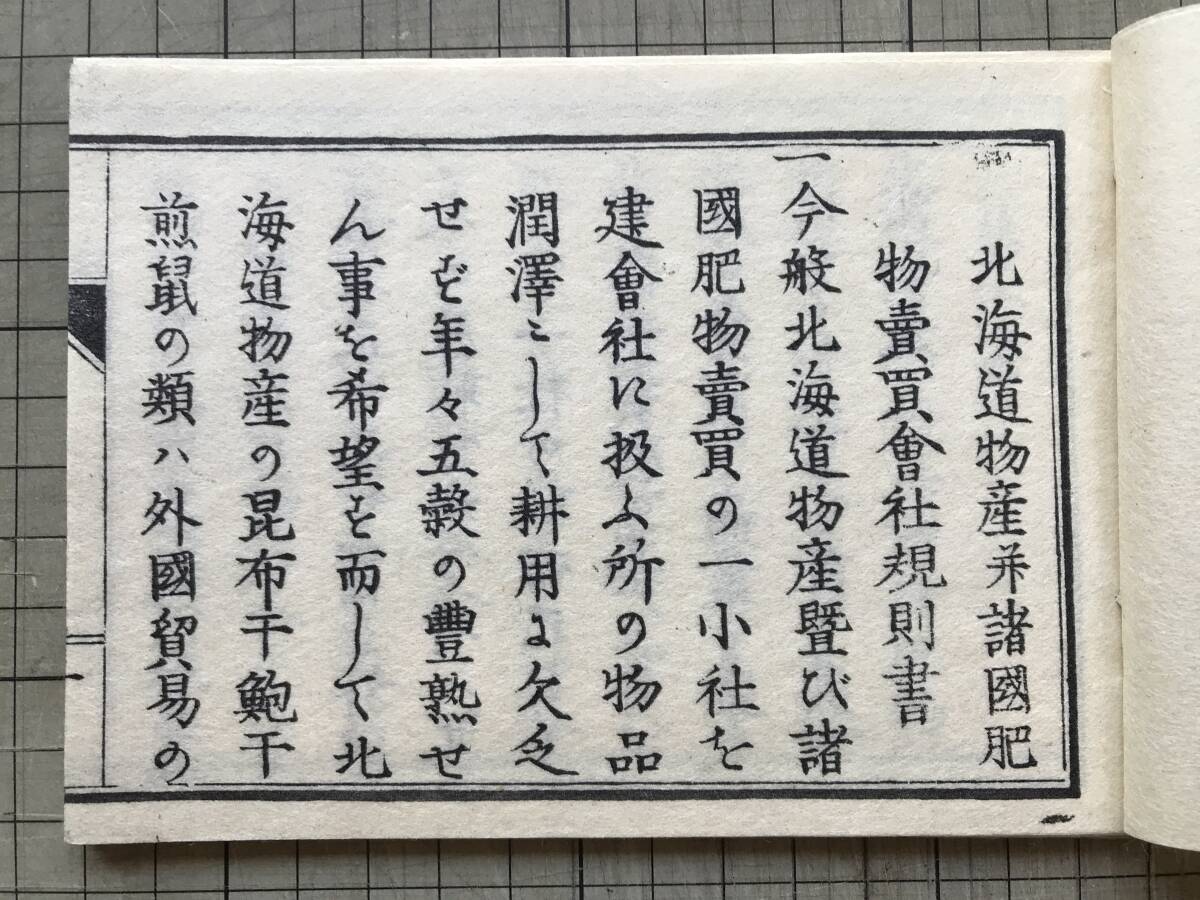 北海道物産并諸國肥
物賣買會社規則書
一今般北海道物産暨び諸
國肥物賣買の一小社を
建會社に扱ふ所の物品
潤澤にして耕用に欠乏
せず年々五穀の豊熟せ
ん事を希望す而して北
海道物産の昆布干鮑干
煎鼠の類ハ外國貿易の